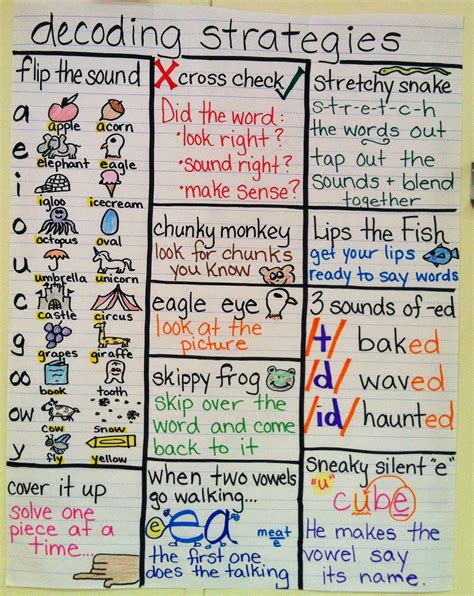 decoding strategies
flip the sound
a apple acorn
e elephant eagle
i igloo icecream
o octopus oval
u umbrella unicorn
c castle circus
g grapes giraffe
oo book tooth
ow cow snow
y fly yellow
cover it up
solve one
piece at a
time...
X cross check ✓
Did the word:
• look right?
• sound right?
• make sense?
chunky monkey
look for chunks
you know
eagle eye
look at the
picture
skippy frog
skip over the
word and come
back to it
when two vowels
go walking...
"e" ea meat
e
the first one
does the talking
stretchy snake
s-t-r-e-t-c-h
the words out
tap out the
sounds + blend
together
Lips the Fish
get your lips
ready to say words
3 sounds of -ed
/t/ baked
/d/ waved
/id/ haunted
Sneaky silent "e"
"u"
cube
He makes the
vowel say
its name.